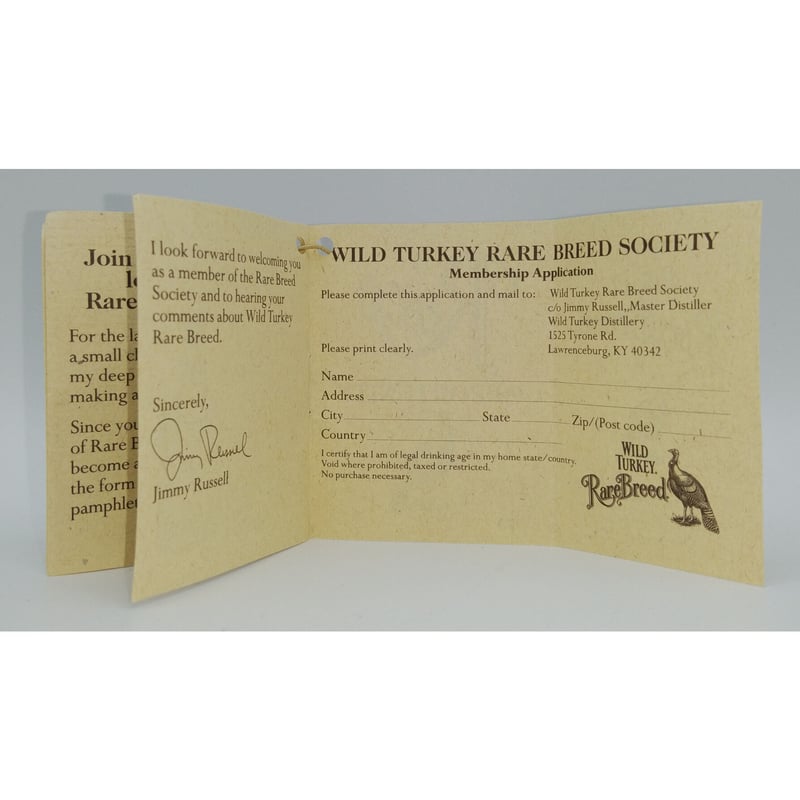 Join
Rare
For the
a small
my deep
making
Since you
of Rare
become
the form
pamphlet
I look forward to welcoming you
as a member of the Rare Breed
Society and to hearing your
comments about Wild Turkey
Rare Breed.
Sincerely,
Jimmy Russell
Jimmy Russell
WILD TURKEY RARE BREED SOCIETY
Membership Application
Please complete this application and mail to:
Wild Turkey Rare Breed Society
c/o Jimmy Russell,,Master Distiller
Wild Turkey Distillery
1525 Tyrone Rd.
Lawrenceburg, KY 40342
Please print clearly.
Name
Address
City State Zip/(Post code)
Country
I certify that I am of legal drinking age in my home state/country.
Void where prohibited, taxed or restricted.
No purchase necessary.
WILD
TURKEY.
Rare Breed